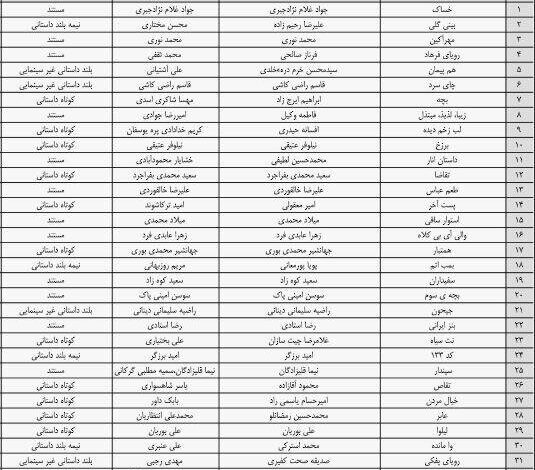 ۱ خساک جواد غلام نژادجبری جواد غلام نژادجبری مستند
۲ بینی گلی علیرضا رحیم زاده محسن مختاری نیمه بلند داستانی
۳ مهرآکین محمد نوری محمد نوری مستند
۴ رویای فرهاد فرناز صالحی محمد ثقفی مستند
۵ هم پیمان سیدمحسن خرم دره‌خلدی علی آشتیانی بلند داستانی غیر سینمایی
۶ چای سرد قاسم راضی کاشی قاسم راضی کاشی بلند داستانی غیر سینمایی
۷ بچه ابراهیم ایرج زاد مهسا شاکری اسدی کوتاه داستانی
۸ زیبا، لذیذ، مبتذل فاطمه وکیل امیررضا جوادی مستند
۹ لب زخم دیده افسانه حیدری کریم خدادادی پره یوسفان کوتاه داستانی
۱۰ برزخ نیلوفر عتیقی نیلوفر عتیقی کوتاه داستانی
۱۱ داستان انار محمدحسین لطیفی خشایار محمودآبادی مستند
۱۲ تقاضا سعید محمدی بفراجرد سعید محمدی بفراجرد کوتاه داستانی
۱۳ طعم عباس علیرضا خالقوردی علیرضا خالقوردی مستند
۱۴ پست آخر امیر معقولی امید ترکاشوند کوتاه داستانی
۱۵ استوار ساقی میلاد محمدی میلاد محمدی مستند
۱۶ والی آی بی کلاه زهرا عابدی فرد زهرا عابدی فرد مستند
۱۷ همتبار جهانشیر محمدی بوری جهانشیر محمدی بوری کوتاه داستانی
۱۸ بمب اتم پویا پورمعانی مریم روزبهانی نیمه بلند داستانی
۱۹ سفیداران سعید کوه زاد سعید کوه زاد مستند
۲۰ بچه ی سوم سوسن امینی پاک سوسن امینی پاک مستند
۲۱ جیحون راضیه سلیمانی دینانی راضیه سلیمانی دینانی بلند داستانی غیر سینمایی
۲۲ بنز ایرانی رضا اسنادی رضا اسنادی مستند
۲۳ نت سیاه غلامرضا چیت سازان علی بختیاری کوتاه داستانی
۲۴ کد ۱۳۳ امید برزگر امید برزگر نیمه بلند داستانی
۲۵ سپندار نیما قلیزادگان نیما قلیزادگان،سمیه مطلبی گرکانی مستند
۲۶ تقاص محمود آقازاده یاسر شاهسواری کوتاه داستانی
۲۷ خیال مردن امیرحسام یاسمی راد بابک داور کوتاه داستانی
۲۸ عابر محمدحسین رمضانلو محمدعلی انتظاریان کوتاه داستانی
۲۹ لیلوا علی پوریان علی پوریان کوتاه داستانی
۳۰ وا مانده محمد استرکی علی عنبری نیمه بلند داستانی
۳۱ رویای پفکی صدیقه صحت کفیری مهدی رجبی بلند داستانی غیر سینمایی